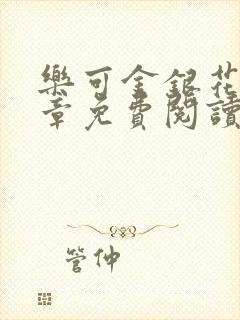 樂可金銀花
章免費閱讀
管仲